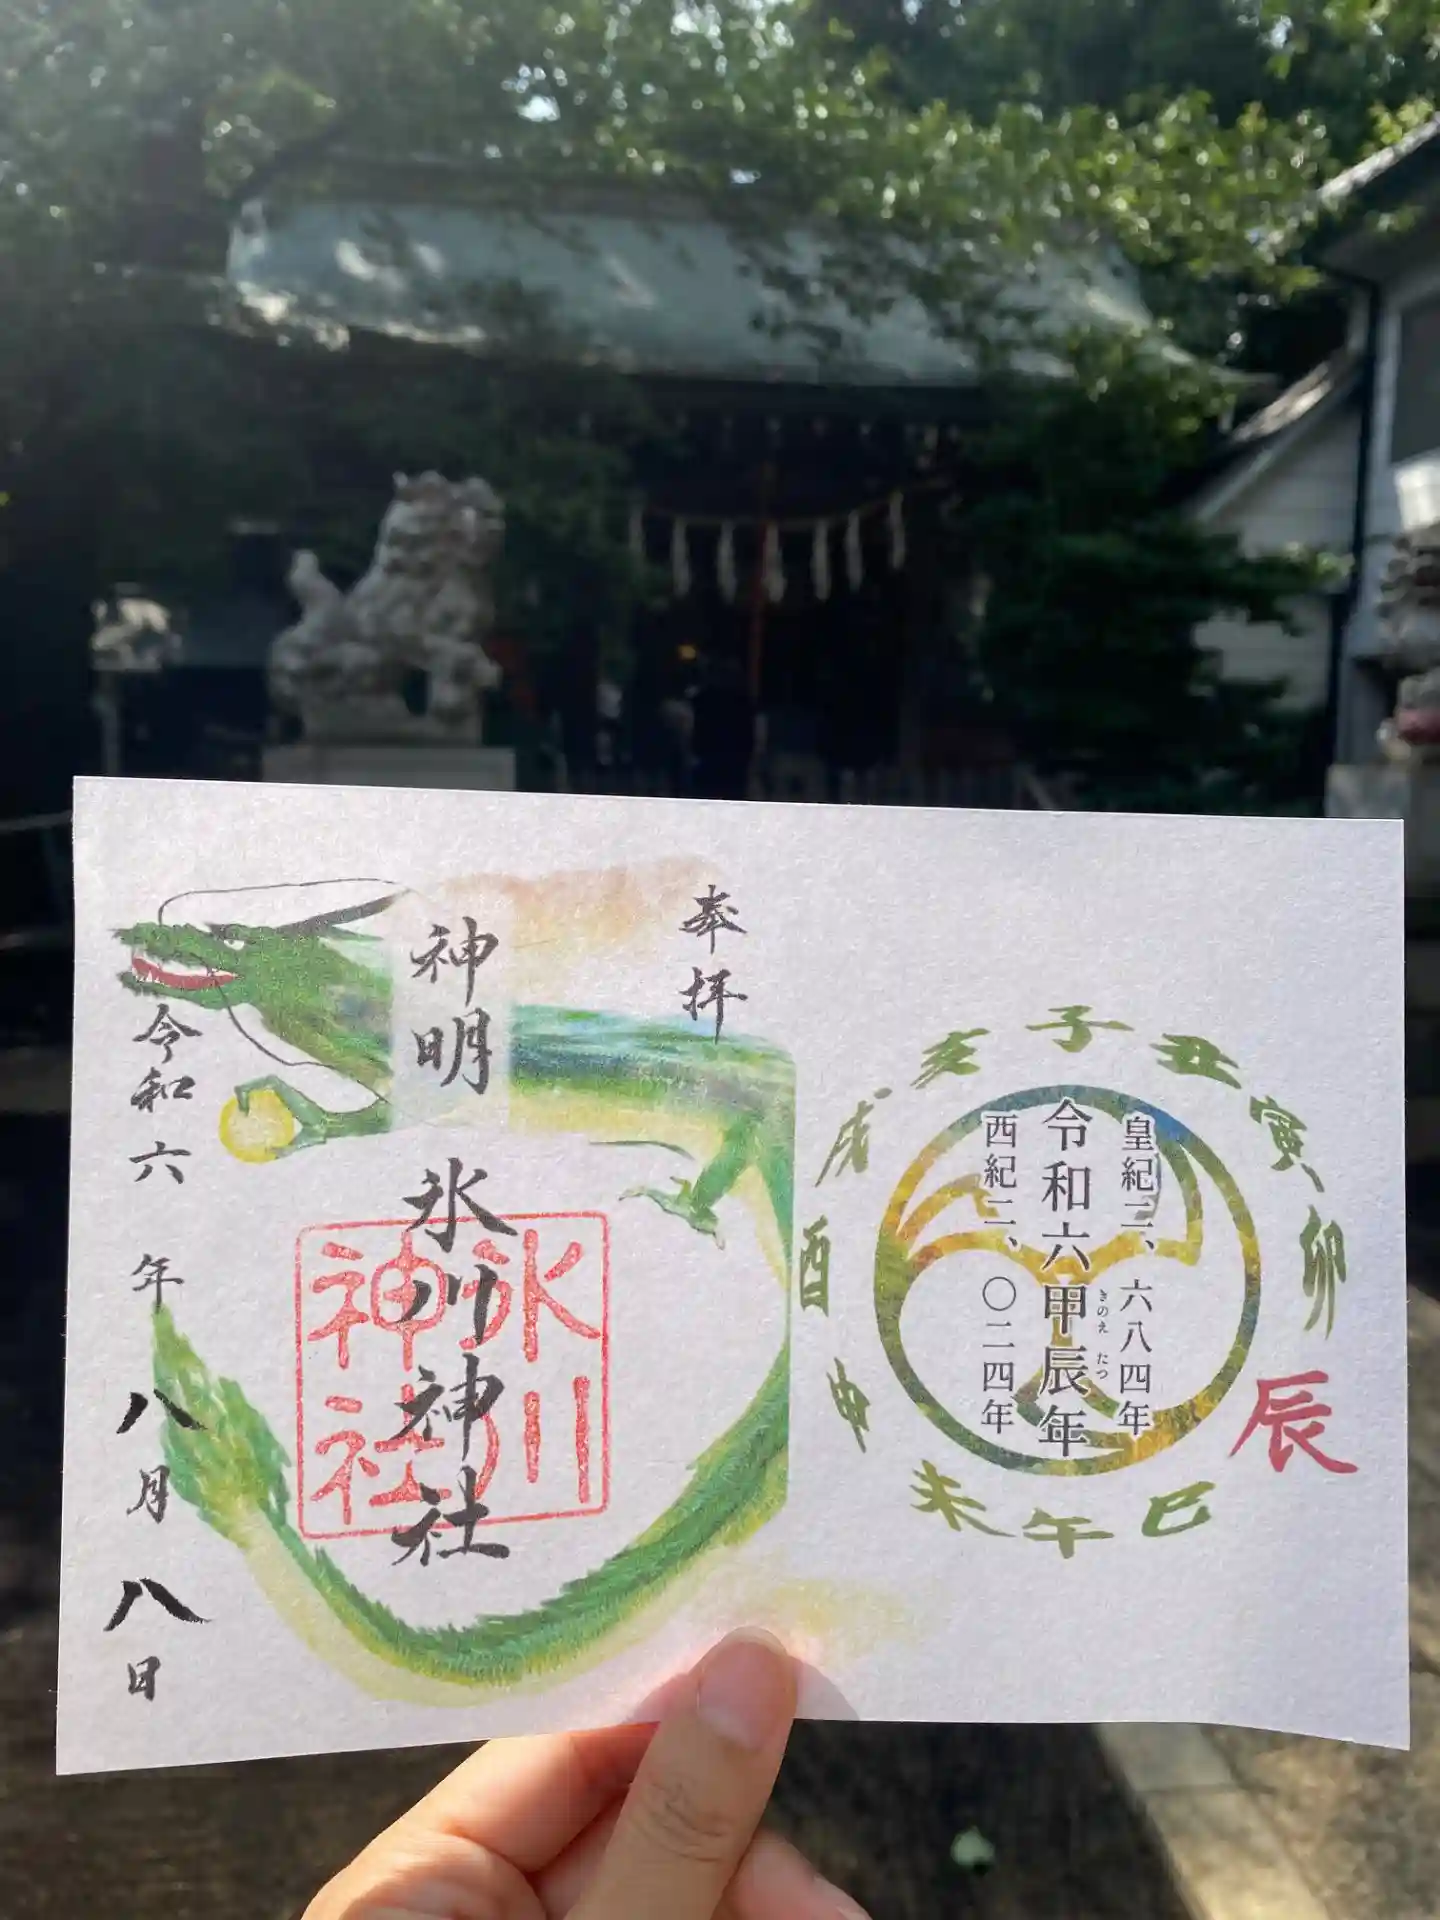 奉拝
神明
氷川神社
氷川
神社
令和六年八月八日
皇紀二、六八四年
令和六甲辰年
きのえ たつ
西紀二、〇二四年
子
丑
寅
卯
辰
巳
午
未
申
酉
戌
亥